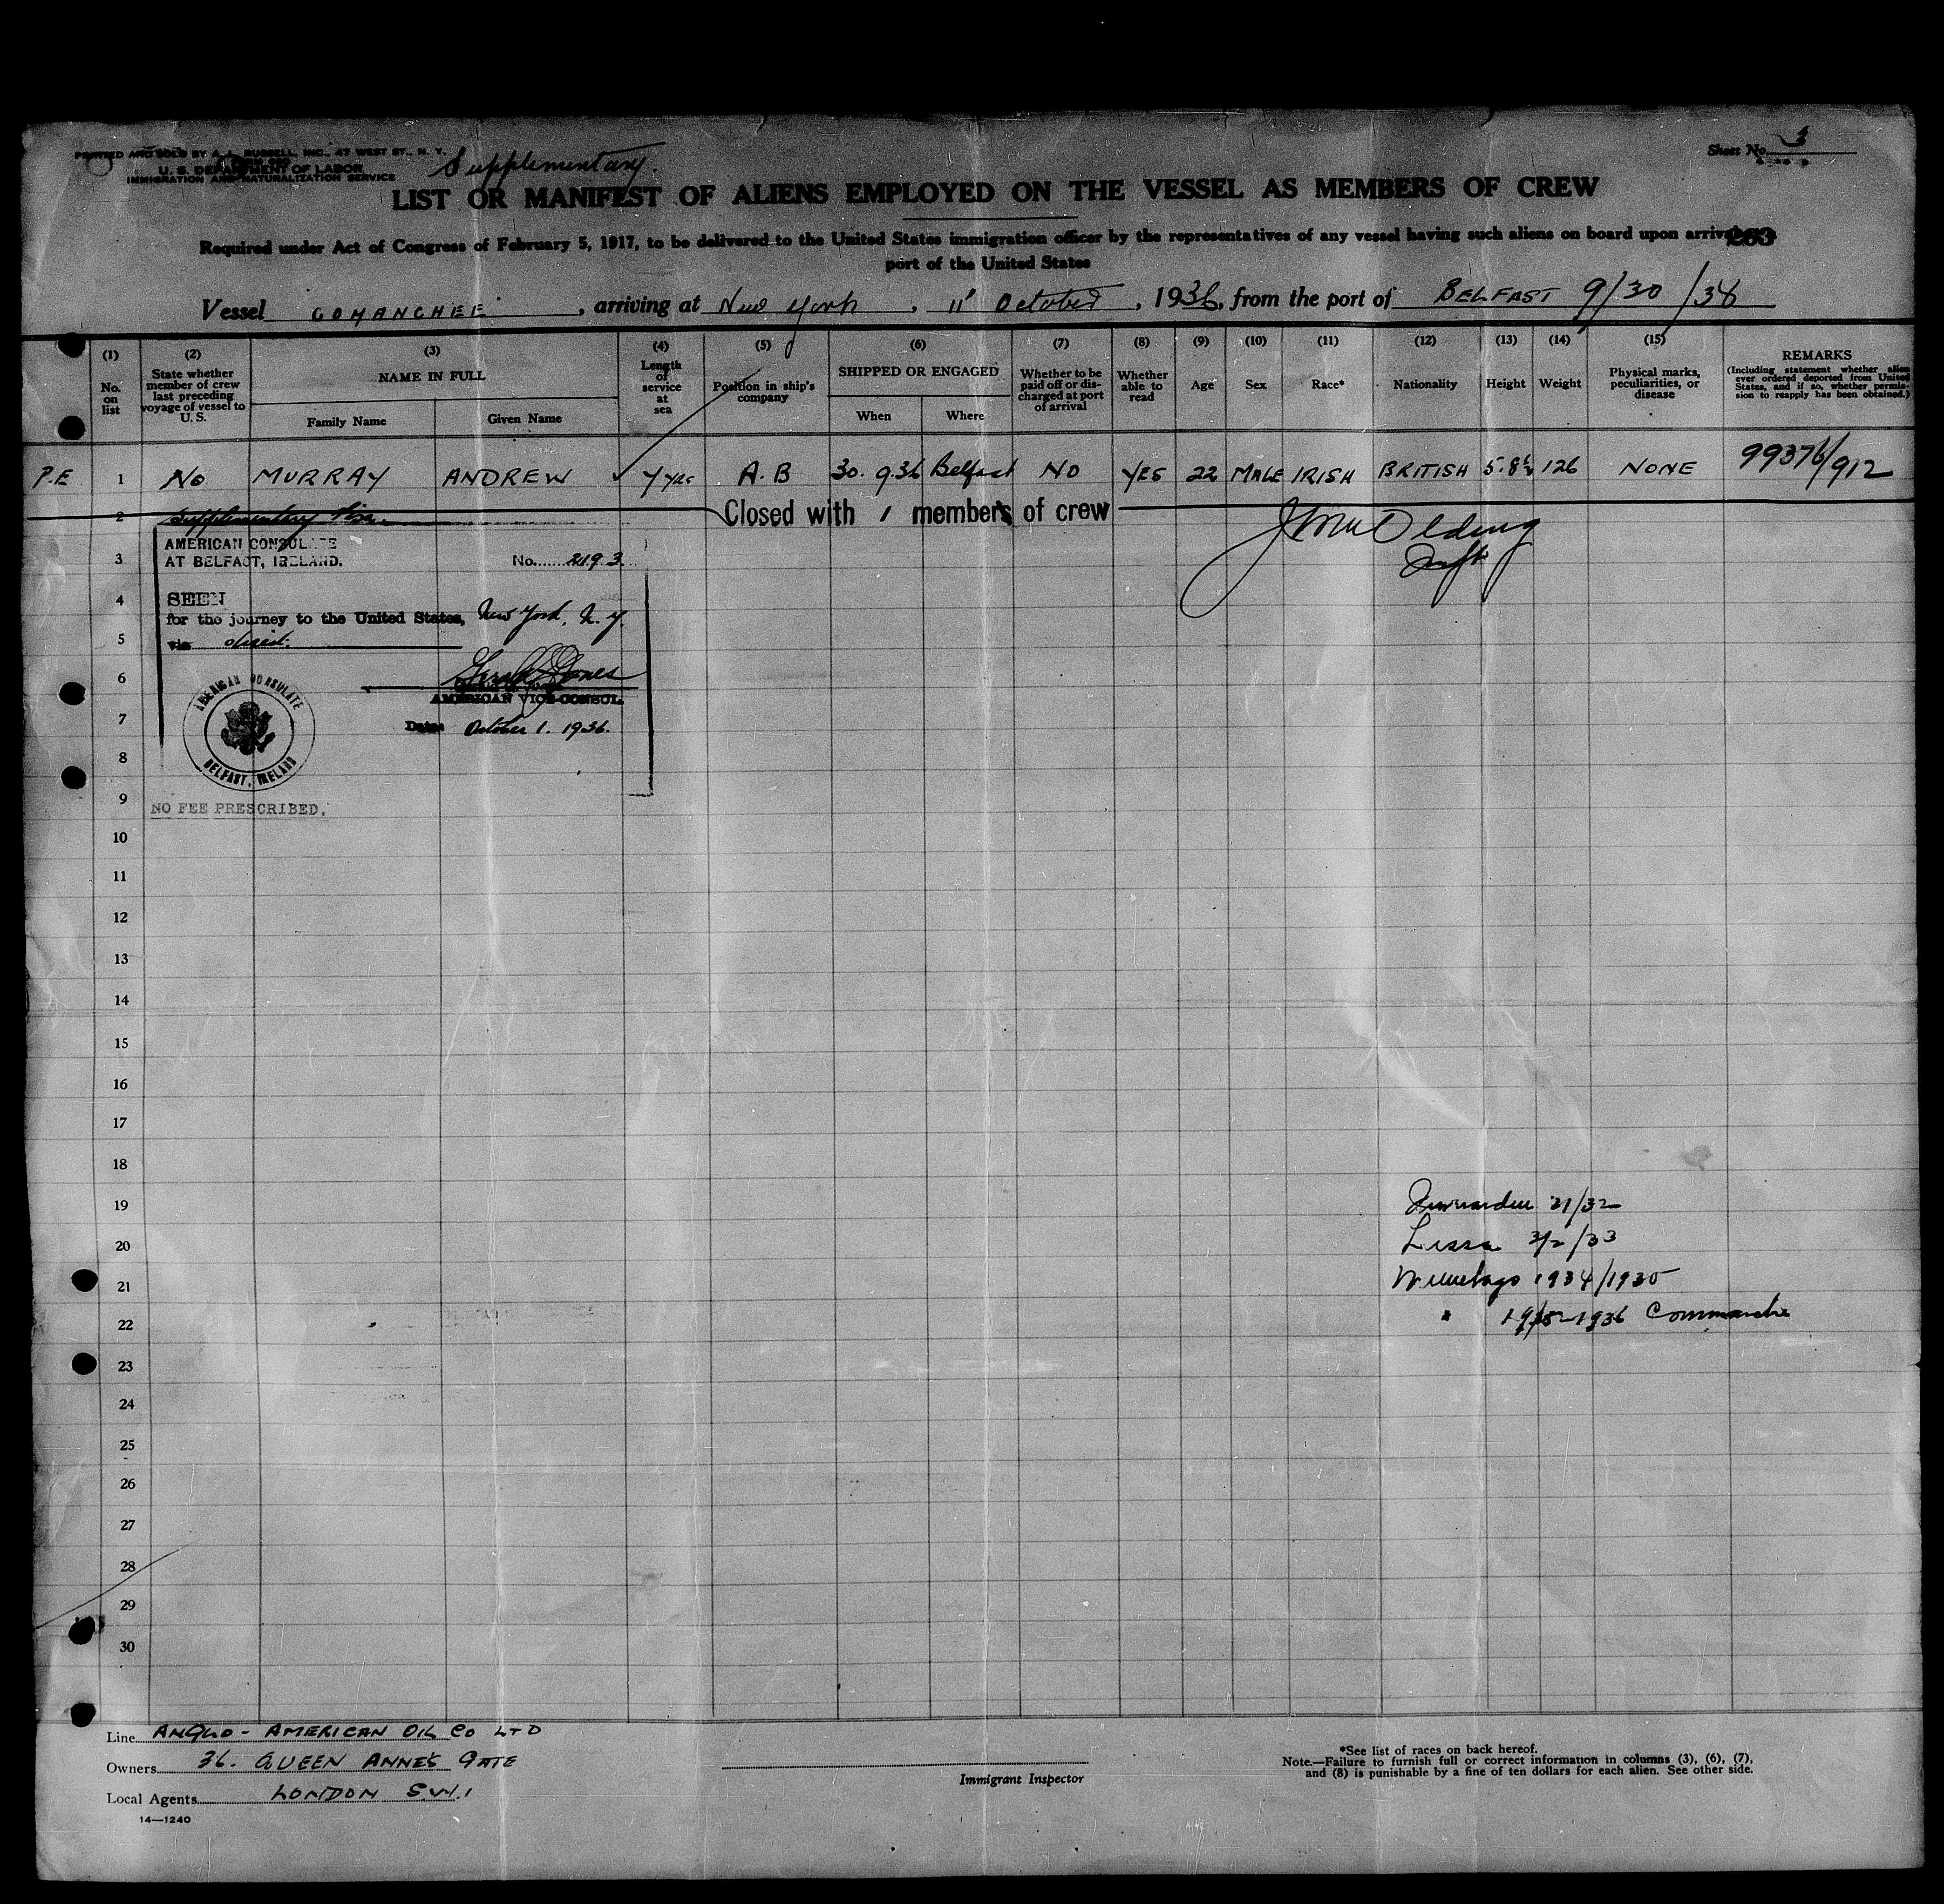 PRINTED AND SOLD BY A. L. RUSSELL, INC., 47 WEST ST., N. Y.
U. S. DEPARTMENT OF LABOR
IMMIGRATION AND NATURALIZATION SERVICE
Supplementary.
Sheet No. 3
LIST OR MANIFEST OF ALIENS EMPLOYED ON THE VESSEL AS MEMBERS OF CREW
Required under Act of Congress of February 5, 1917, to be delivered to the United States immigration officer by the representatives of any vessel having such aliens on board upon arrival
263
port of the United States
Vessel COMANCHEE, arriving at New York, 11' October, 1936, from the port of BELFAST 9/30/36
(1) (2) (3) (4) (5) (6) (7) (8) (9) (10) (11) (12) (13) (14) (15) REMARKS
No. on list
State whether member of crew last preceding voyage of vessel to U. S.
NAME IN FULL
Family Name
Given Name
Length of service at sea
Position in ship's company
SHIPPED OR ENGAGED
When
Where
Whether to be paid off or discharged at port of arrival
Whether able to read
Age
Sex
Race*
Nationality
Height
Weight
Physical marks, peculiarities, or disease
(Including statement whether alien ever ordered deported from United States, and if so, whether permission to reapply has been obtained.)
P.E 1 No MURRAY ANDREW 7 yrs A.B 30. 9.36 Belfast NO YES 22 MALE IRISH BRITISH 5.8½ 126 NONE 99376/912
2 Supplementary Visa. Closed with 1 members of crew
AMERICAN CONSULATE
3 AT BELFAST, IRELAND. No. 2193
4 SEEN
for the journey to the United States, New York, N. Y.
5 via direct.
6
AMERICAN VICE-CONSUL
7 Date October 1. 1936.
AMERICAN CONSULATE
BELFAST, IRELAND
8
9 NO FEE PRESCRIBED.
10
11
12
13
14
15
16
17
18
19 31/32
20 Lissa 3/2/33
21 1934/1935
22 " 1935-1936 Commanche
23
24
25
26
27
28
29
30
Line ANGLO-AMERICAN OIL CO LTD
Owners 36. QUEEN ANNE'S GATE
Local Agents LONDON S.W.1
14—1240
Immigrant Inspector
*See list of races on back hereof.
Note.—Failure to furnish full or correct information in columns (3), (6), (7),
and (8) is punishable by a fine of ten dollars for each alien. See other side.